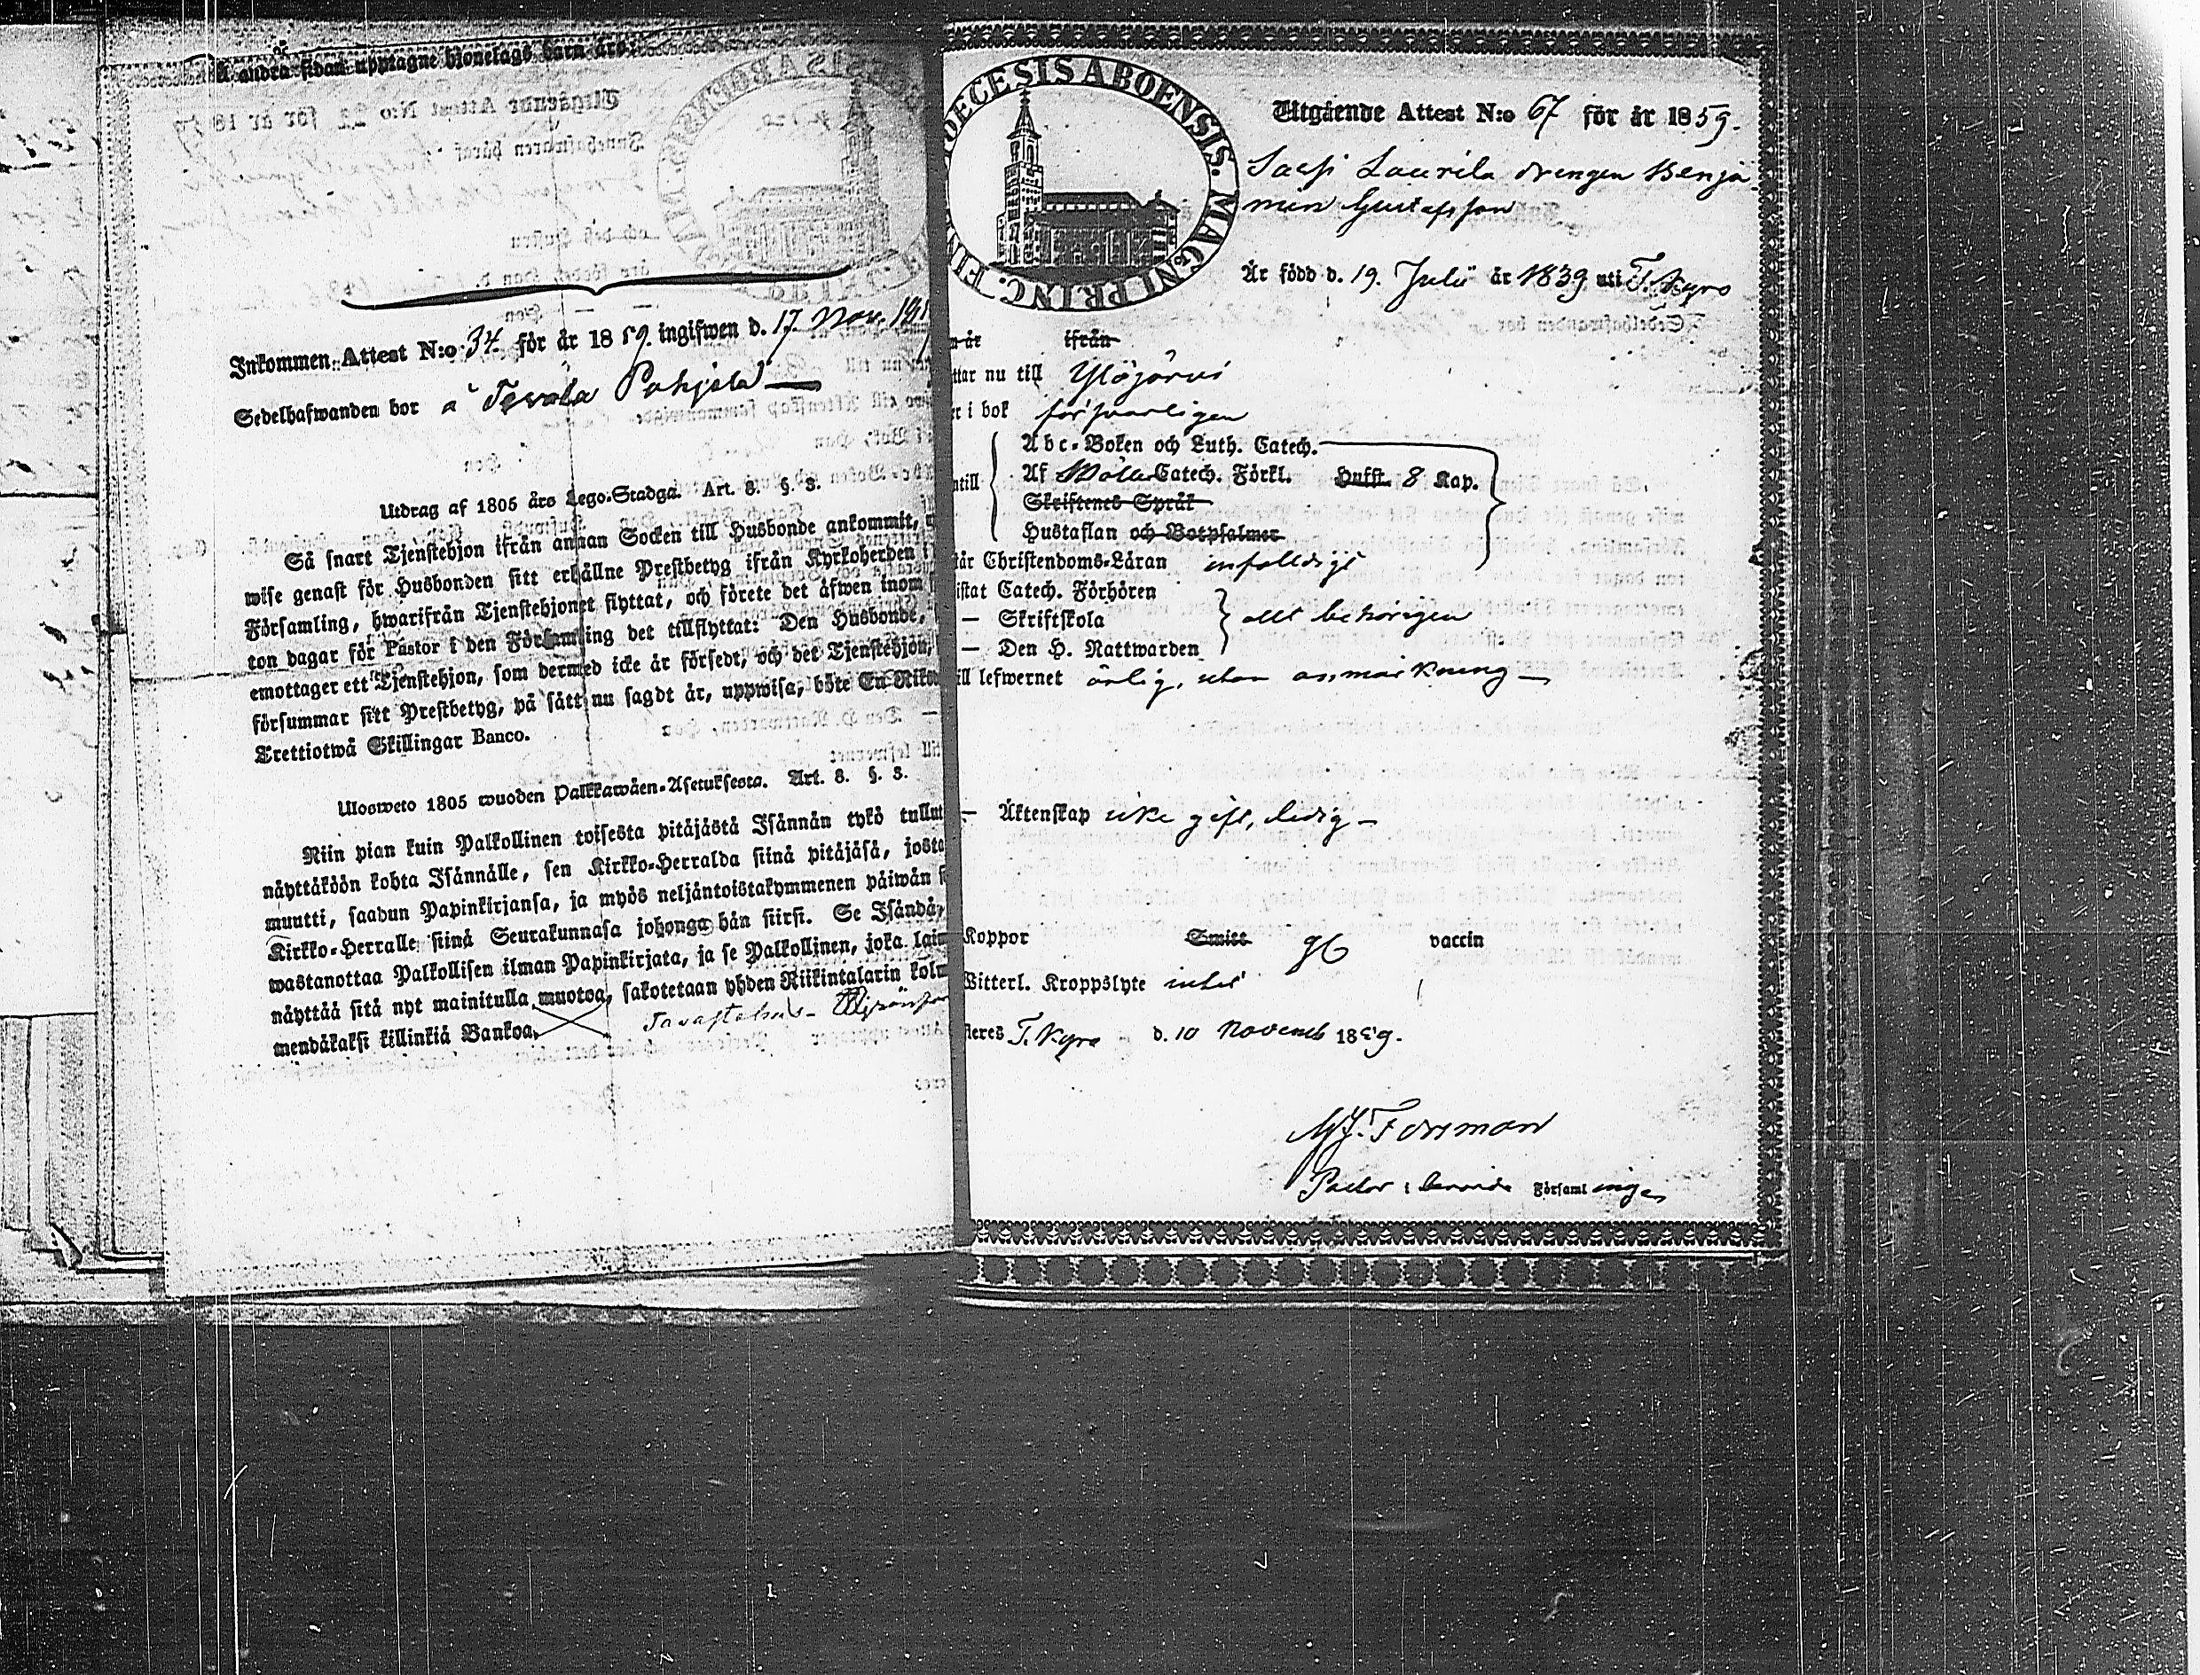 Å andra sidan upptagne hjonelags barn äro:
Inkommen Attest N:o 34. för år 1859. ingifwen d. 17. Nov.
Sedelhafwanden bor å Tevala Pohjola
Utdrag af 1805 års Lego-Stadga. Art. 8. §. 3.
Så snart Tjenstehjon ifrån annan Socken till Husbonde ankommit,
wise genast för Husbonden sitt erhållne Prestbetyg ifrån Kyrkoherden i
Församling, hwarifrån Tjenstehjonet flyttat, och förete det äfwen inom
ton dagar för Pastor i den Församling det tillflyttat: Den Husbonde,
emottager ett Tjenstehjon, som dermed icke är försedt, och det Tjenstehjon,
försummar sitt Prestbetyg, på sätt nu sagdt är, uppwisa, böte En Riks
Trettiotwå Skillingar Banco.
Ulosweto 1805 wuoden Palkkawäen-Asetuksesta. Art. 8. §. 3.
Niin pian kuin Palkollinen toisesta pitäjästä Isännän tykö tullut
näyttäköön kohta Isännälle, sen Kirkko-Herralda siinä pitäjäsä, josta
muutti, saadun Papinkirjansa, ja myös neljäntoistakymmenen päiwän s
Kirkko-Herralle siinä Seurakunnasa johonga hän siirsi. Se Isändä,
wastanottaa Palkollisen ilman Papinkirjata, ja se Palkollinen, joka lai
näyttää sitä nyt mainitulla muotoa, sakotetaan yhden Riikintalarin kolm
mendäkaksi killinkiä Bankoa.
DIOECESIS ABOENSIS. MAGNI PRINC. FIN
Utgående Attest N:o 67 för år 1859.
Sassi Laurila drengen Benja-
min Gustafsson
Är född d. 19. Julii år 1839 uti T. Kyro
är ifrån
ttar nu till Ylöjärvi
r i bok försvarligen
Abc-Boken och Luth. Catech.
ntill Af Catech. Förkl. Hufst. 8 Kap.
Skriftenes Språk
Hustaflan och Botpsalmer
tår Christendoms-Läran enfalldigt
istat Catech. Förhören
— Skriftskola allt behörigen
— Den H. Nattwarden
ill lefwernet ärlig, utan anmärkning —
— Äktenskap icke gift, ledig —
Koppor Smitt gC vaccin
Witterl. Kroppslyte intet
steres T. Kyro d. 10 Novemb 1859.
MJ. Forsman
Pastor i berörde Församlingen